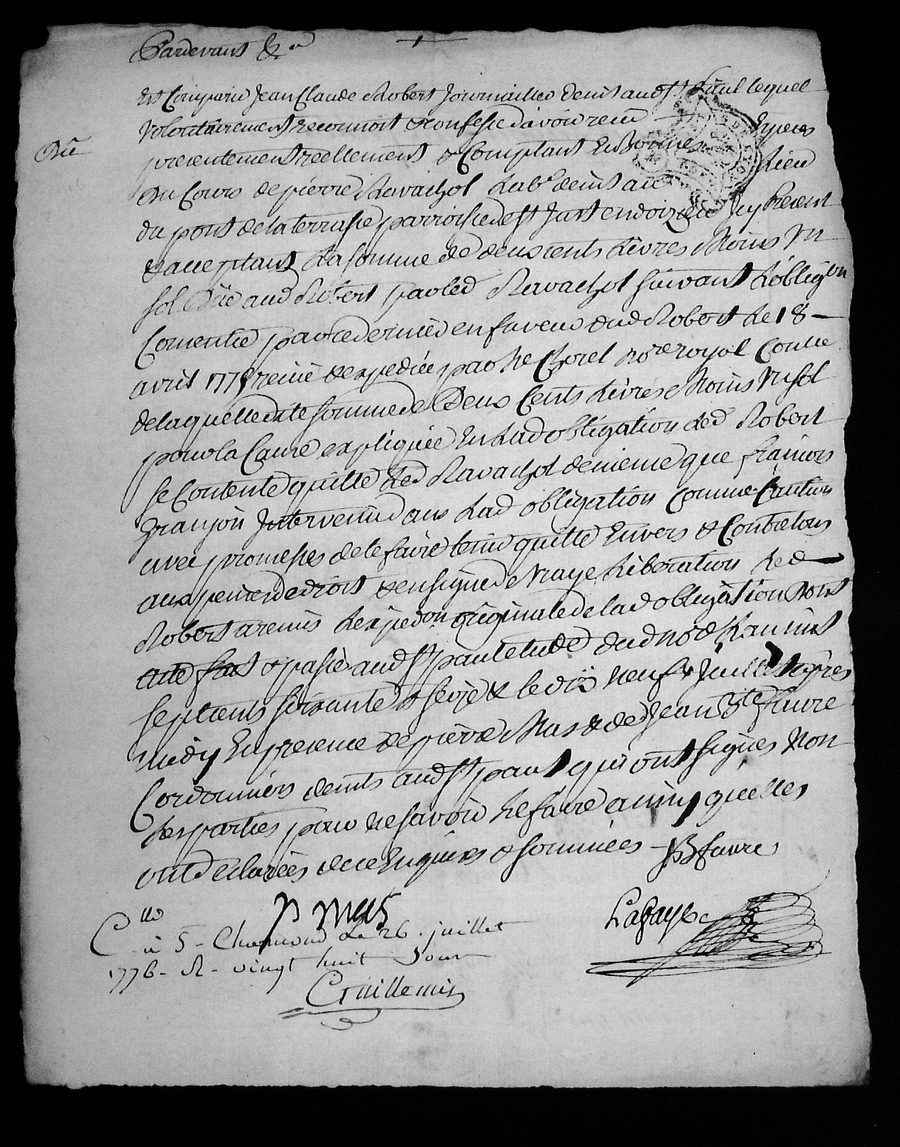 Pardevant &a
Est Comparu Jean Claude Robert Journaillier demt aud St Paul lequel
volontairement reconnoit & confesse d'avoir reçu
qce
presentement reellement & Comptant En bonnes Especes
du Cours de pierre Ravachol Labr demt au Lieu
du pont de la terrasse parroisse de St Just en doizieu icy present
& acceptant La somme de deux cents Livres Moins un
sol düe aud Robert par led Ravachol suivant L'obligon
Consentie par ce dernier en faveur dud Robert Le 18
avril 1775 reçüe & expediée par Me Chorel nore royal Contre
de laquelle dite somme de Deux Cents Livres Moins un sol
pour la Cause expliquée En Lad obligation Led Robert
se Contente quitte Led Ravachol de meme que françois
granjon Intervenu dans Lad obligation Comme Caution
avec promesses de le faire tenir quitte Envers & Contre tous
aux peines de droit & en signe de Vraye Liberation Led
Robert a remis L'expedon originale de lad obligation dont
acte fait & passé aud St paul etude dud nore L'an mil
sept cents soixante & seize & le dix neuf Juillet après
midy En presence de pierre Mas & de Jean Bte favre
Cordonniers demts aud St paul qui ont signés Non
Les parties pour ne savoir Le faire ainsy qu'elles
ont declarées de ce Enquises & sommées JB favre
p mas
Lagaye
Cllé
à S. Chamond Le 26 juillet
1776 R vingt huit sous
Guillemin